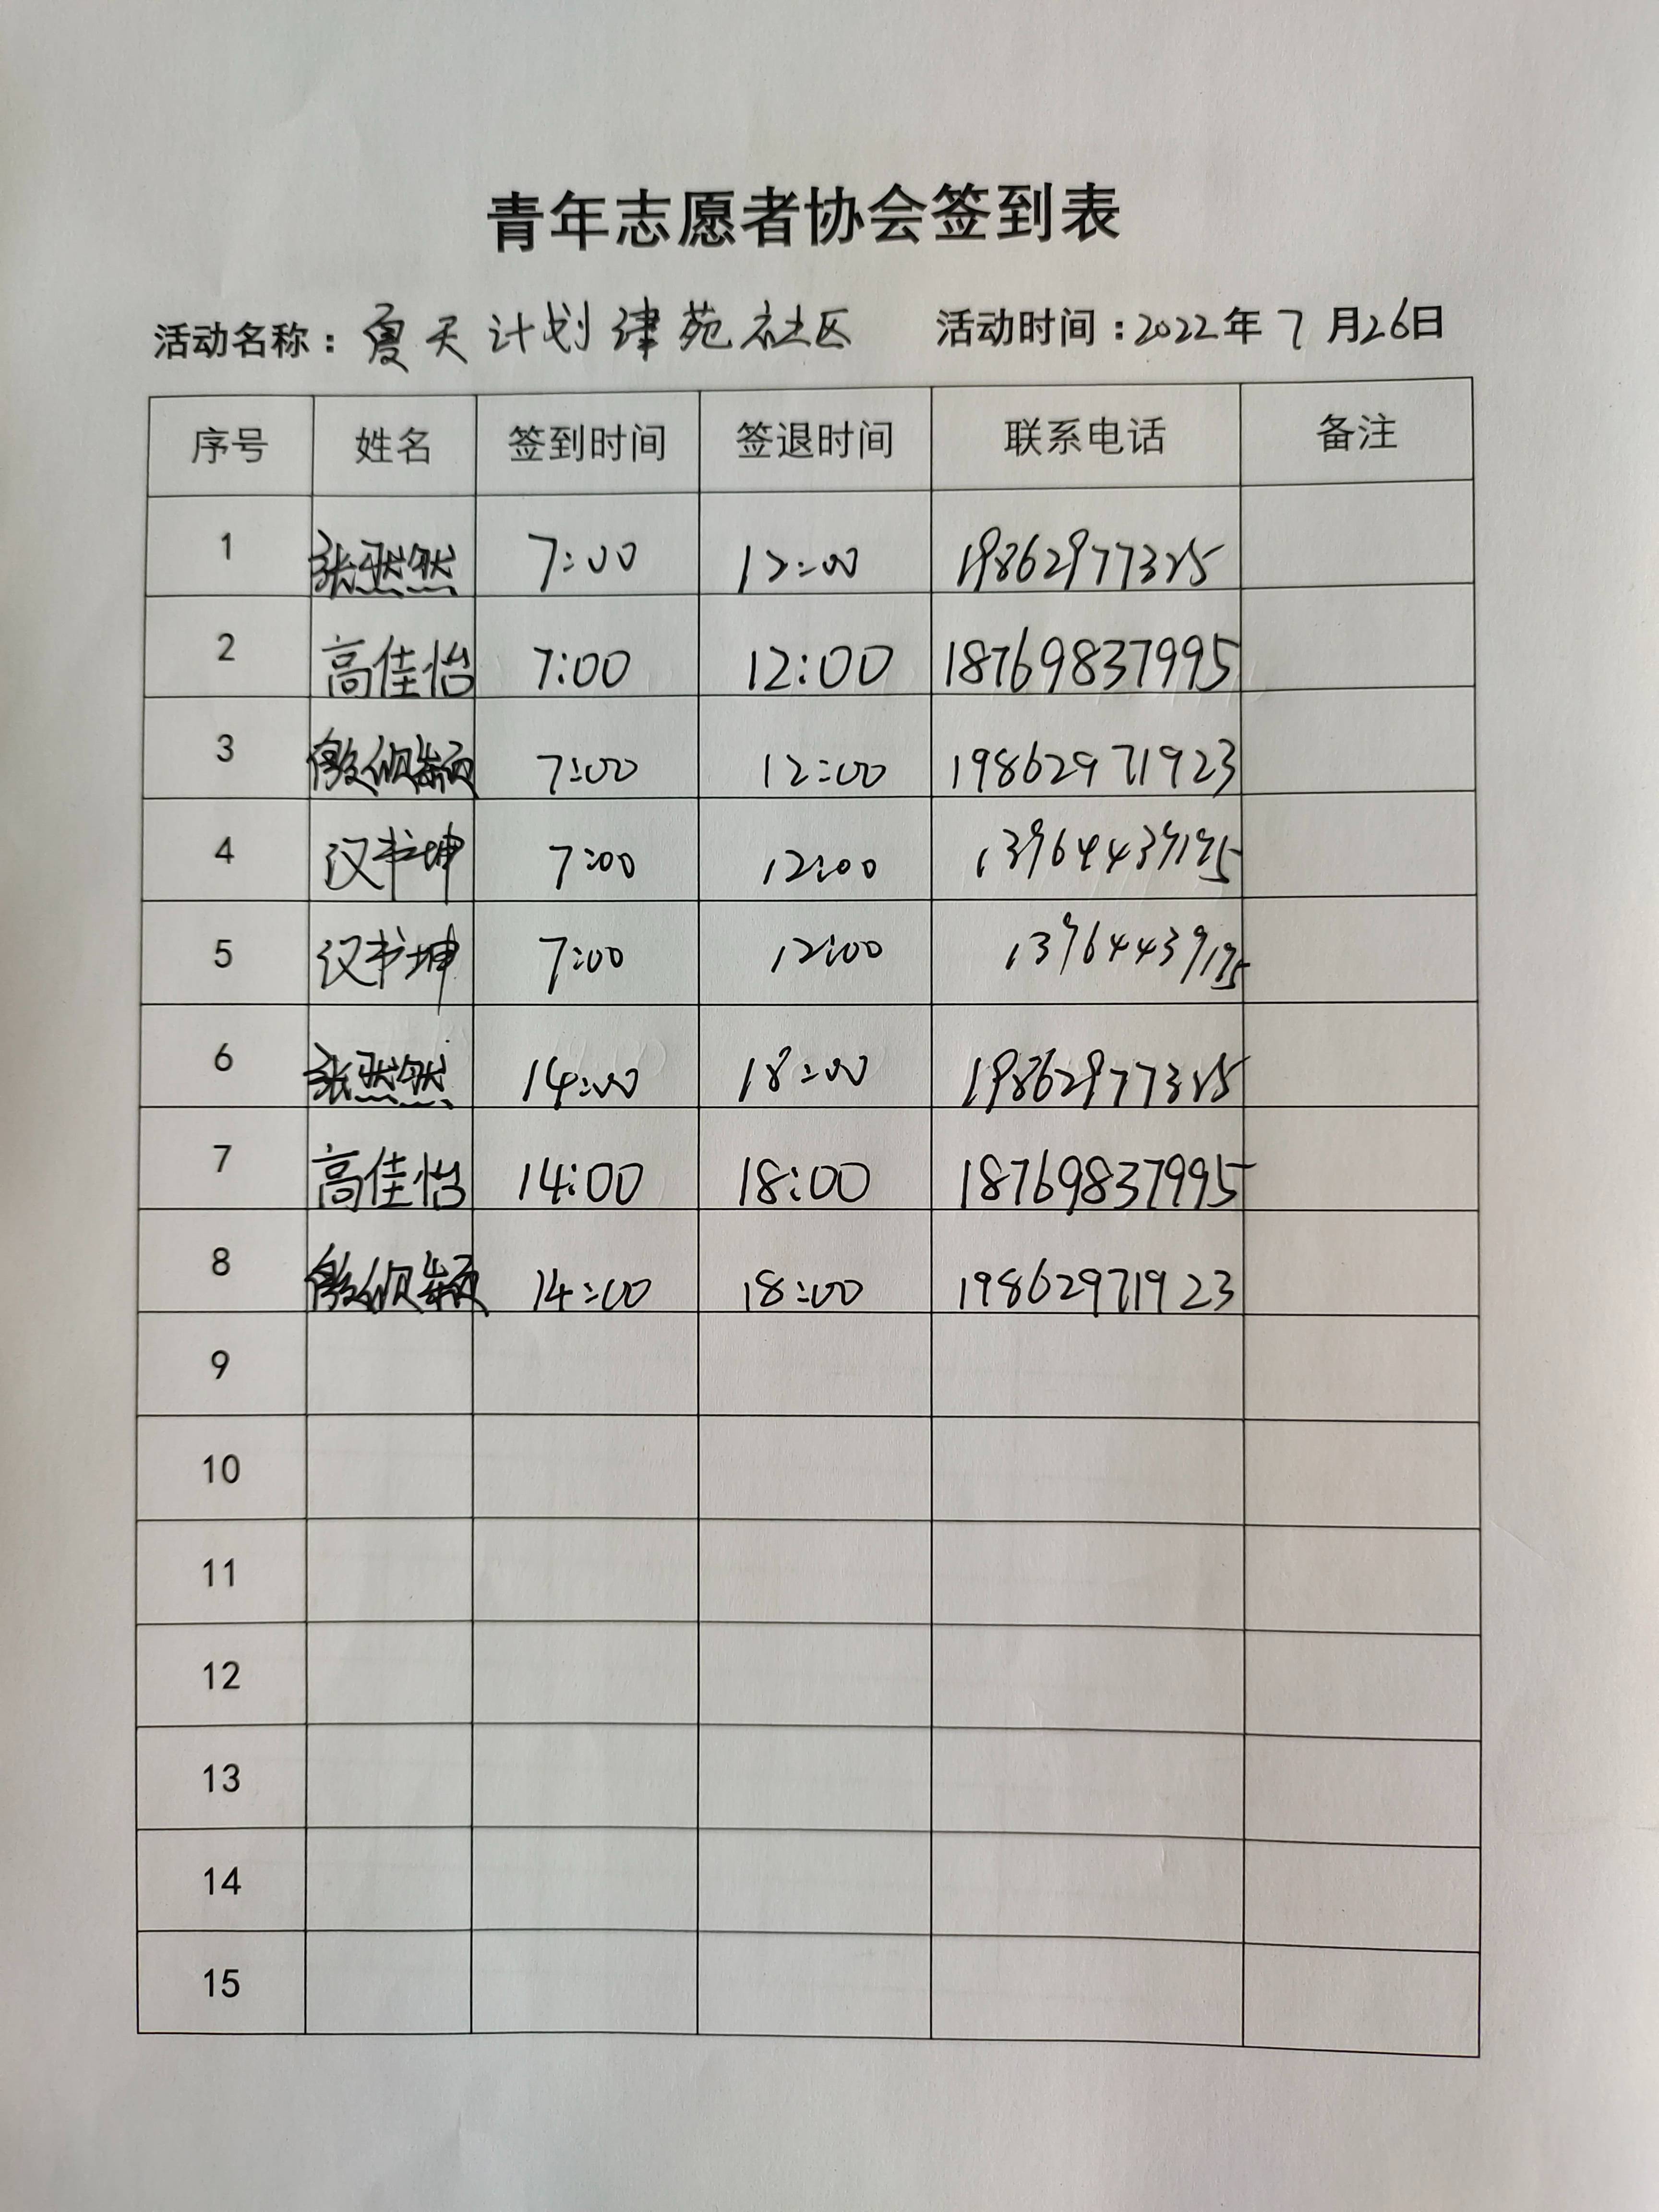 青年志愿者协会签到表
活动名称：夏天计划津苑社区 活动时间：2022年7月26日
序号 姓名 签到时间 签退时间 联系电话 备注
1 张然然 7:00 12:00 19862977325
2 高佳怡 7:00 12:00 18769837995
3 7:00 12:00 19862971923
4 汉书坤 7:00 12:00
5 汉书坤 7:00 12:00
6 张然然 14:00 18:00 19862977325
7 高佳怡 14:00 18:00 18769837995
8 14:00 18:00 19862971923
9
10
11
12
13
14
15